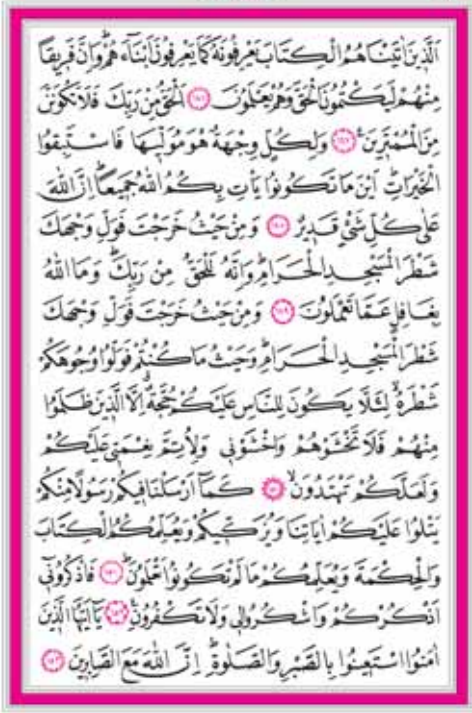 اَلَّذ۪ينَ اٰتَيْنَاهُمُ الْكِتَابَ يَعْرِفُونَهُ كَمَا يَعْرِفُونَ اَبْنَٓاءَهُمْۜ وَاِنَّ فَر۪يقًا
مِنْهُمْ لَيَكْتُمُونَ الْحَقَّ وَهُمْ يَعْلَمُونَ ﴿١٤٦﴾ اَلْحَقُّ مِنْ رَبِّكَ فَلَا تَكُونَنَّ
مِنَ الْمُمْتَر۪ينَ۟ ﴿١٤٧﴾ وَلِكُلٍّ وِجْهَةٌ هُوَ مُوَلّ۪يهَا فَاسْتَبِقُوا
الْخَيْرَاتِۜ اَيْنَ مَا تَكُونُوا يَأْتِ بِكُمُ اللّٰهُ جَم۪يعًاۜ اِنَّ اللّٰهَ
عَلٰى كُلِّ شَيْءٍ قَد۪يرٌ ﴿١٤٨﴾ وَمِنْ حَيْثُ خَرَجْتَ فَوَلِّ وَجْهَكَ
شَطْرَ الْمَسْجِدِ الْحَرَامِۜ وَاِنَّهُ لَلْحَقُّ مِنْ رَبِّكَۜ وَمَا اللّٰهُ
بِغَافِلٍ عَمَّا تَعْمَلُونَ ﴿١٤٩﴾ وَمِنْ حَيْثُ خَرَجْتَ فَوَلِّ وَجْهَكَ
شَطْرَ الْمَسْجِدِ الْحَرَامِۜ وَحَيْثُ مَا كُنْتُمْ فَوَلُّوا وُجُوهَكُمْ
شَطْرَهُۙ لِئَلَّا يَكُونَ لِلنَّاسِ عَلَيْكُمْ حُجَّةٌۗ اِلَّا الَّذ۪ينَ ظَلَمُوا
مِنْهُمْ فَلَا تَخْشَوْهُمْ وَاخْشَوْن۪ي وَلِاُتِمَّ نِعْمَت۪ي عَلَيْكُمْ
وَلَعَلَّكُمْ تَهْتَدُونَۙ ﴿١٥٠﴾ كَمَٓا اَرْسَلْنَا ف۪يكُمْ رَسُولًا مِنْكُمْ
يَتْلُوا عَلَيْكُمْ اٰيَاتِنَا وَيُزَكّ۪يكُمْ وَيُعَلِّمُكُمُ الْكِتَابَ
وَالْحِكْمَةَ وَيُعَلِّمُكُمْ مَا لَمْ تَكُونُوا تَعْلَمُونَۜ ﴿١٥١﴾ فَاذْكُرُون۪ٓي
اَذْكُرْكُمْ وَاشْكُرُوا ل۪ي وَلَا تَكْفُرُونِ۟ ﴿١٥٢﴾ يَٓا اَيُّهَا الَّذ۪ينَ
اٰمَنُوا اسْتَع۪ينُوا بِالصَّبْرِ وَالصَّلٰوةِۜ اِنَّ اللّٰهَ مَعَ الصَّابِر۪ينَ ﴿١٥٣﴾